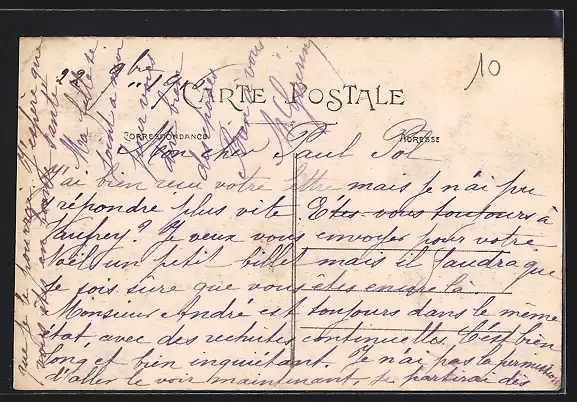 10
22 9bre
CARTE POSTALE
CORRESPONDANCE ADRESSE
Mon cher Paul Pol
J'ai bien reçu votre lettre mais je n'ai pu
répondre plus vite. Êtes-vous toujours à
? Je veux vous envoyer pour votre
Noël un petit billet mais il faudra que
je sois sûre que vous êtes encore là
Monsieur André est toujours dans le même
état, avec des rechutes continuelles. C'est bien
long et bien inquiétant. Je n'ai pas la permission
d'aller le voir maintenant, je partirai dès
que je le pourrai. J'espère que
vous êtes en bonne santé
Ma fille se
joint à moi
pour vous